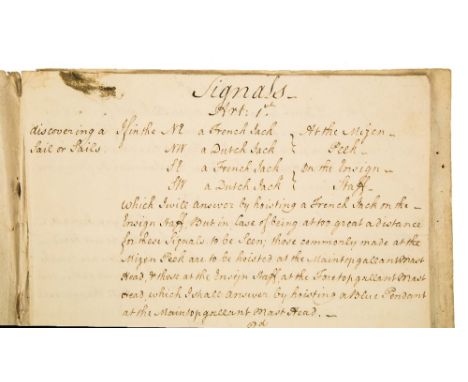 Signals
Art: 1st
discovering a If in the NE a French Jack At the Mizen
Sail or Sails. NW a Dutch Jack Peek
SE a French Jack on the Ensign
SW a Dutch Jack Staff
which I will answer by hoisting a French Jack on the
Ensign Staff. But in Case of being at too great a distance
for these Signals to be Seen; those commonly made at the
Mizen Peek are to be hoisted at the Maintopgallant Mast
Head, & those at the Ensign Staff, at the Foretopgallant Mast
Head which I shall answer by hoisting a Blue Pendant
at the Maintopgallant Mast Head.